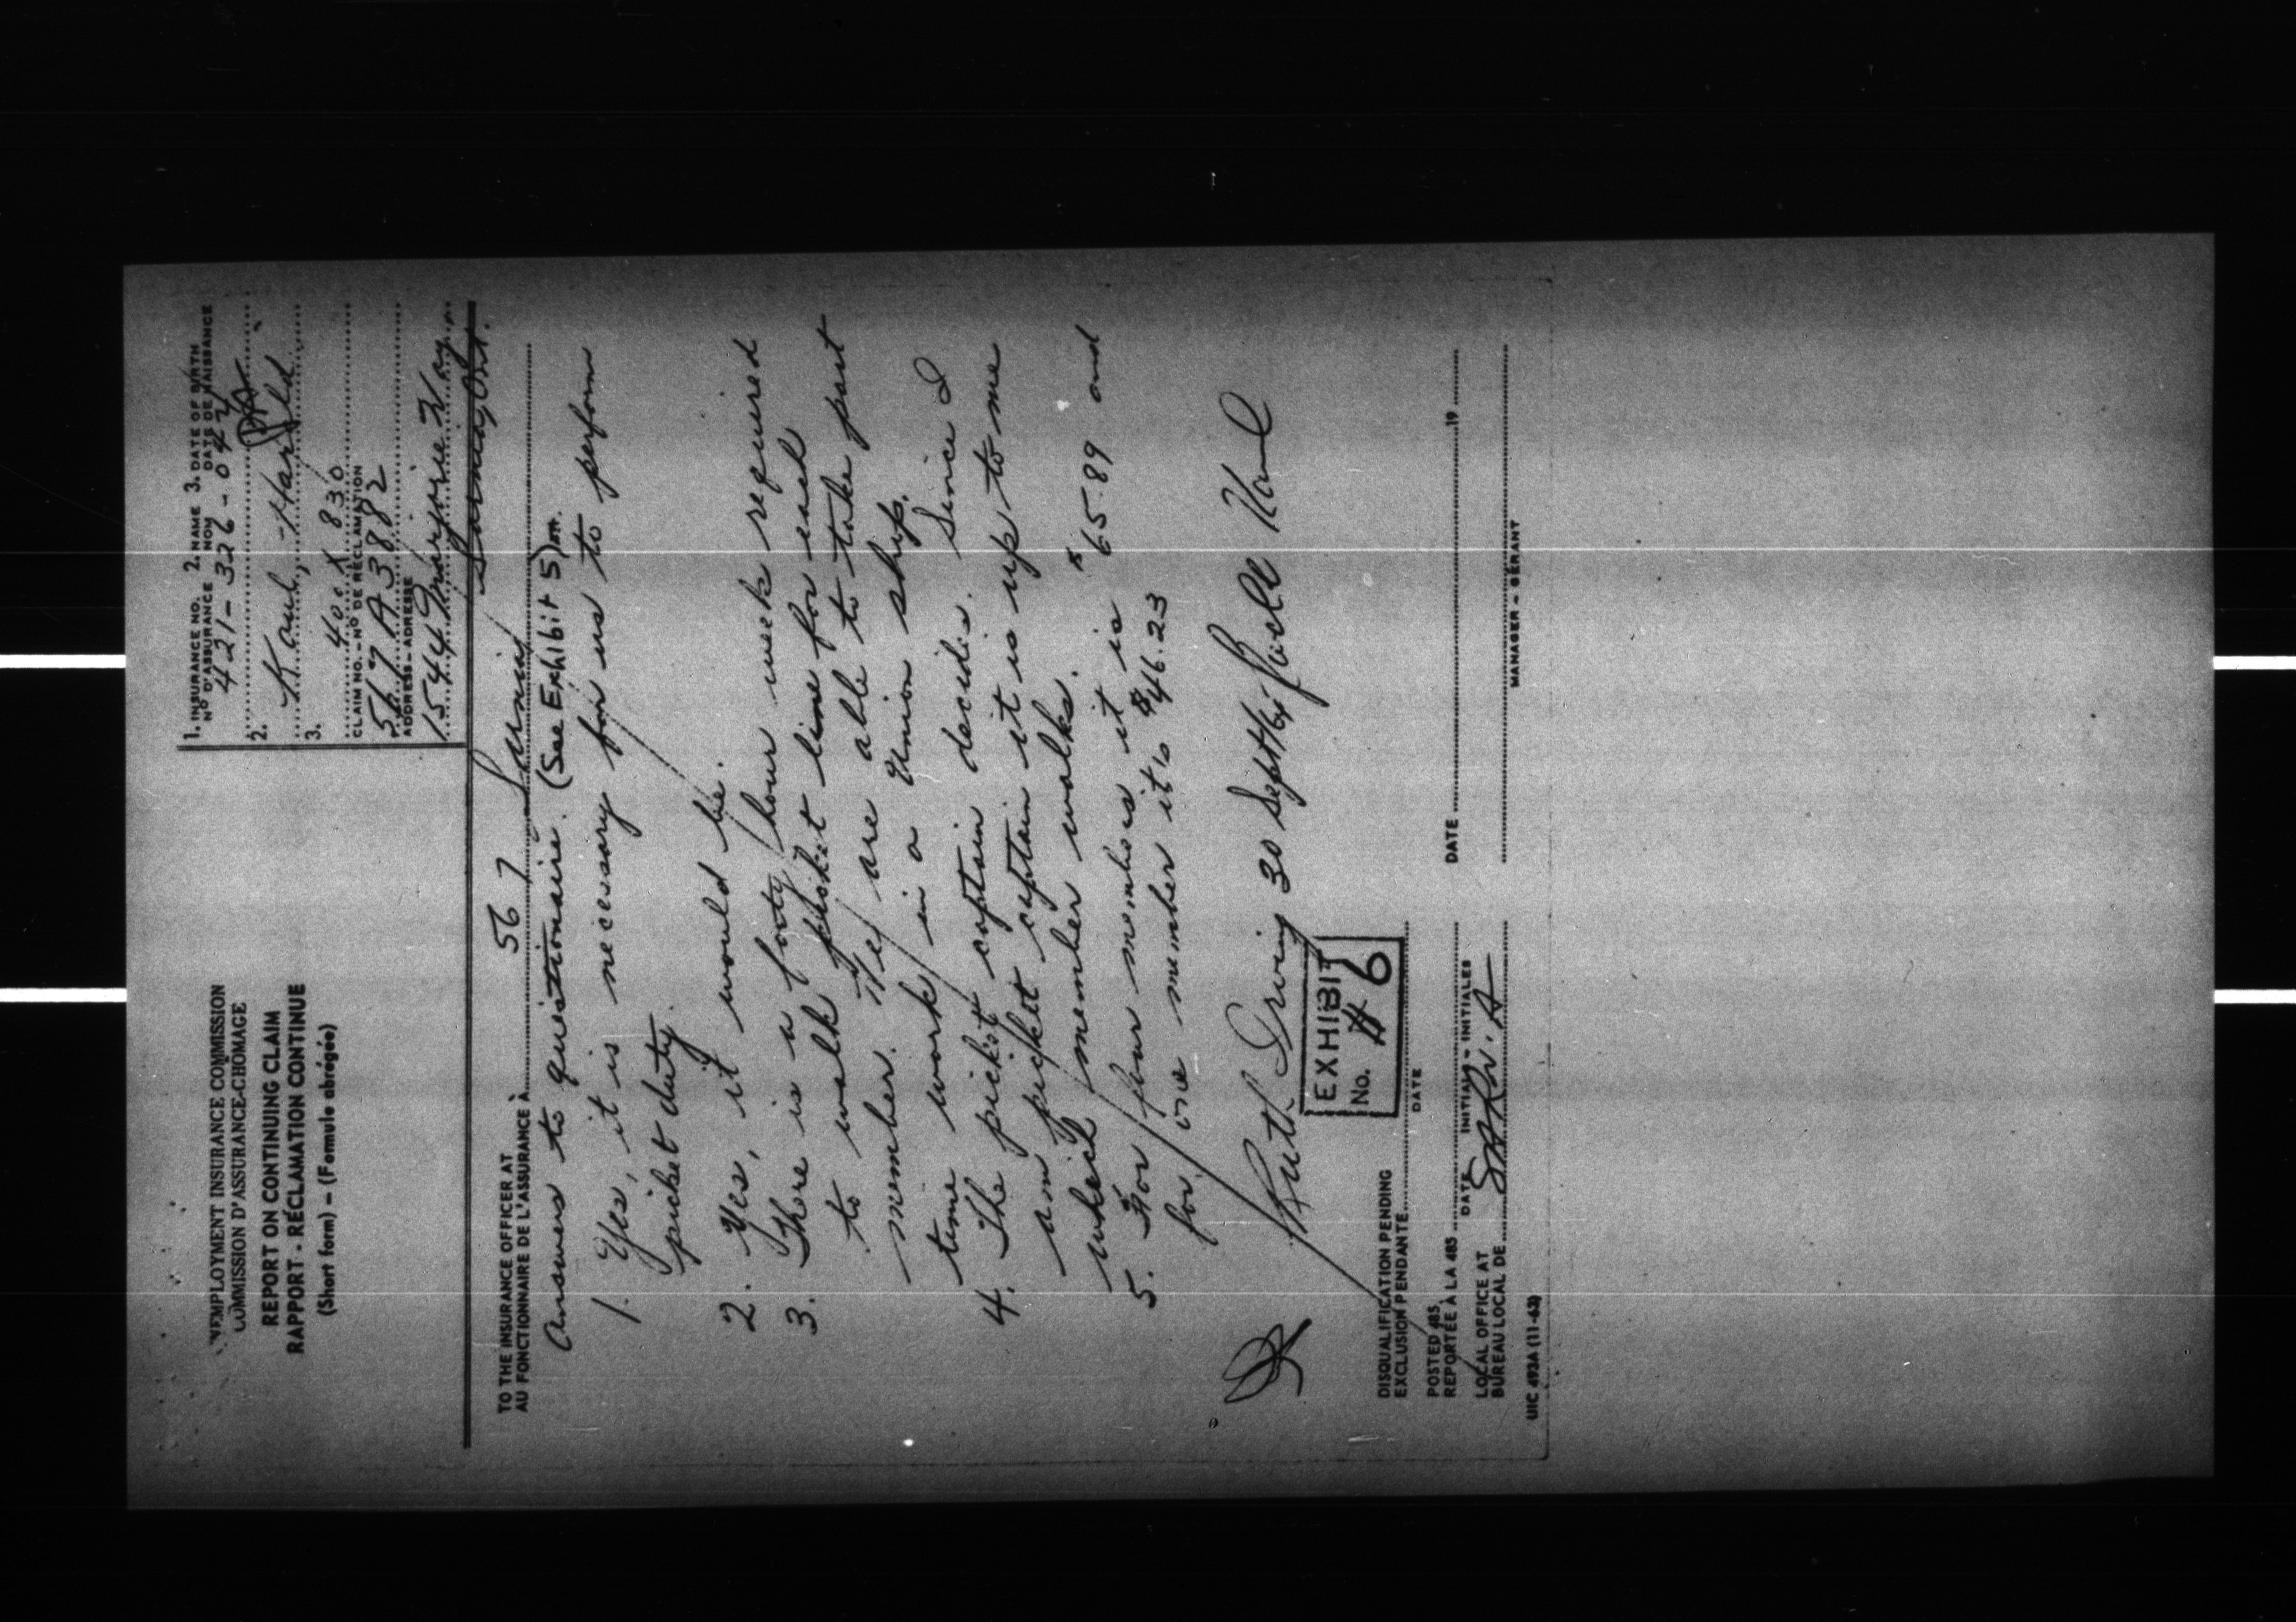 UNEMPLOYMENT INSURANCE COMMISSION
COMMISSION D'ASSURANCE-CHÔMAGE
REPORT ON CONTINUING CLAIM
RAPPORT - RÉCLAMATION CONTINUE
(Short form) - (Formule abrégée)
1. INSURANCE NO. 2. NAME 3. DATE OF BIRTH
Nº D'ASSURANCE NOM DATE DE NAISSANCE
421-326-042
2. Kaul, Harold
3. 400X 830
CLAIM NO. - Nº DE RÉCLAMATION
567 A3882
ADDRESS - ADRESSE
1544 Marjorie Way
Sarnia, Ont.
TO THE INSURANCE OFFICER AT
AU FONCTIONNAIRE DE L'ASSURANCE À 567 Sarnia
Answers to questionaire. (See Exhibit 5)
1. Yes, it is necessary for us to perform
picket duty.
2. Yes, it would be.
3. There is a forty hour week required
to walk picket line for each
member. They are able to take part
time work in a Union shop.
4. The picket captain decides. Since I
am picket captain it is up to me
which member walks.
5. For four members it is $65.89 and
for one member it is $46.23
Ruth Irving 30 Sept/64
EXHIBIT
No. #6
DISQUALIFICATION PENDING
EXCLUSION PENDANTE
DATE
POSTED 485
REPORTÉE À LA 485
DATE INITIALS - INITIALES
DATE 19
LOCAL OFFICE AT
BUREAU LOCAL DE
MANAGER - GÉRANT
UIC 493A (11-63)